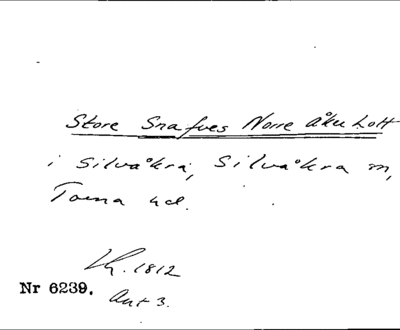 Store Snafves Norre åker Lott
i Silvåkra, Silvåkra sn,
Torna hd.
Lh. 1812
Akt 3.
Nr 6239.